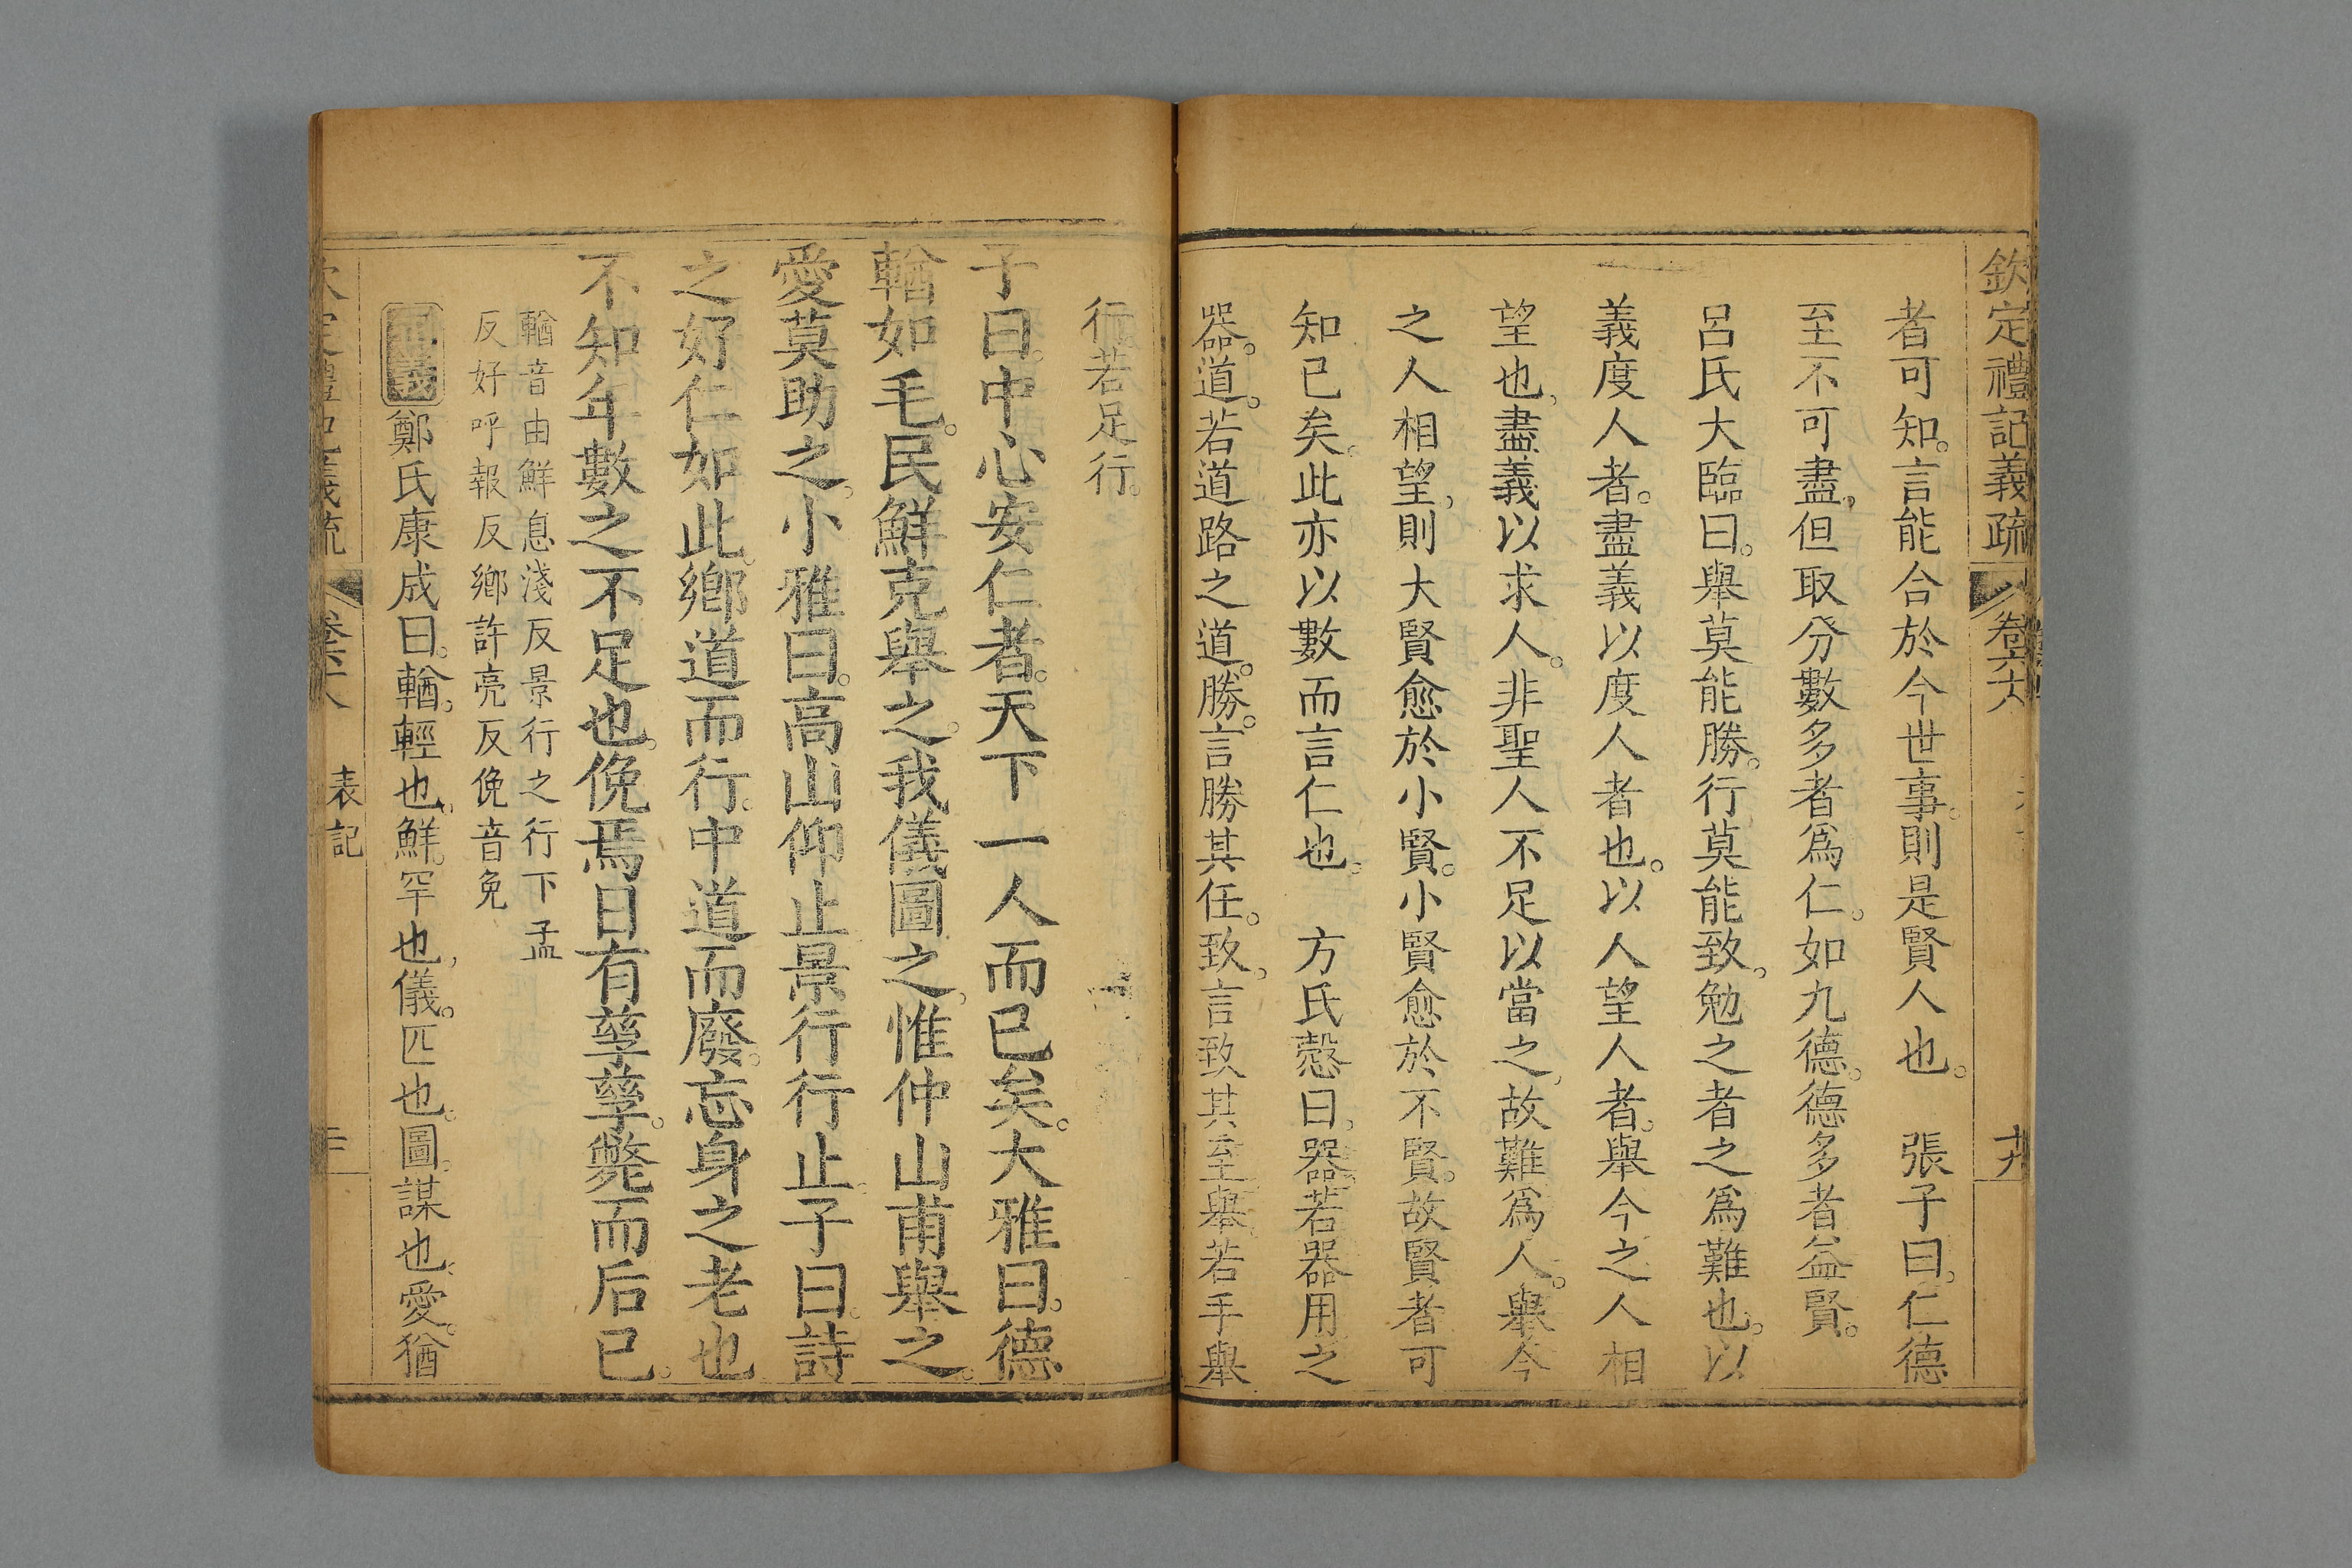 欽定禮記義疏 卷六十八
者可知。言能合於今世事。則是賢人也。　張子曰。仁德
至不可盡，但取分數多者爲仁。如九德。德多者益賢。
呂氏大臨曰。舉莫能勝。行莫能致。勉之者之爲難也。以
義度人者。盡義以度人者也。以人望人者。舉今之人相
望也，盡義以求人。非聖人不足以當之，故難爲人。舉今
之人相望，則大賢愈於小賢。小賢愈於不賢。故賢者可
知已矣。此亦以數而言仁也。　方氏愨曰。器。若器用之
器。道。若道路之道。勝。言勝其任。致，言致其至。舉。若手舉
行。若足行。
子曰。中心安仁者。天下一人而已矣。大雅曰。德
輶如毛。民鮮克舉之。我儀圖之，惟仲山甫舉之。
愛莫助之。小雅曰。高山仰止景行行止。子曰。詩
之好仁如此。鄉道而行。中道而廢。忘身之老也
不知年數之不足也。俛焉日有孳孳。斃而后已。
輶音由鮮息淺反景行之行下孟
反好呼報反鄉許亮反俛音免
正義 鄭氏康成曰。輶。輕也，鮮。罕也，儀。匹也。圖。謀也。愛。猶
表記